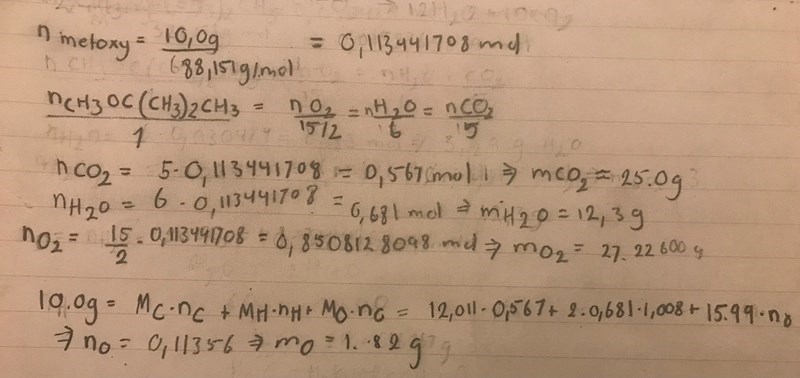 n metoxy = 10,0g / 88,151g/mol = 0,113441708 mol
nCH3OC(CH3)2CH3 / 1 = nO2 / 15/2 = nH2O / 6 = nCO2 / 5
nCO2 = 5·0,113441708 = 0,567 mol ⇒ mCO2 ≈ 25.0g
nH2O = 6·0,113441708 = 0,681 mol ⇒ mH2O = 12,3g
nO2 = 15/2·0,113441708 = 0,8508128098 mol ⇒ mO2 = 27.22600g
10.0g = MC·nC + MH·nH + MO·nO = 12,011·0,567 + 2·0,681·1,008 + 15.99·nO
⇒ nO = 0,11356 ⇒ mO = 1.82g